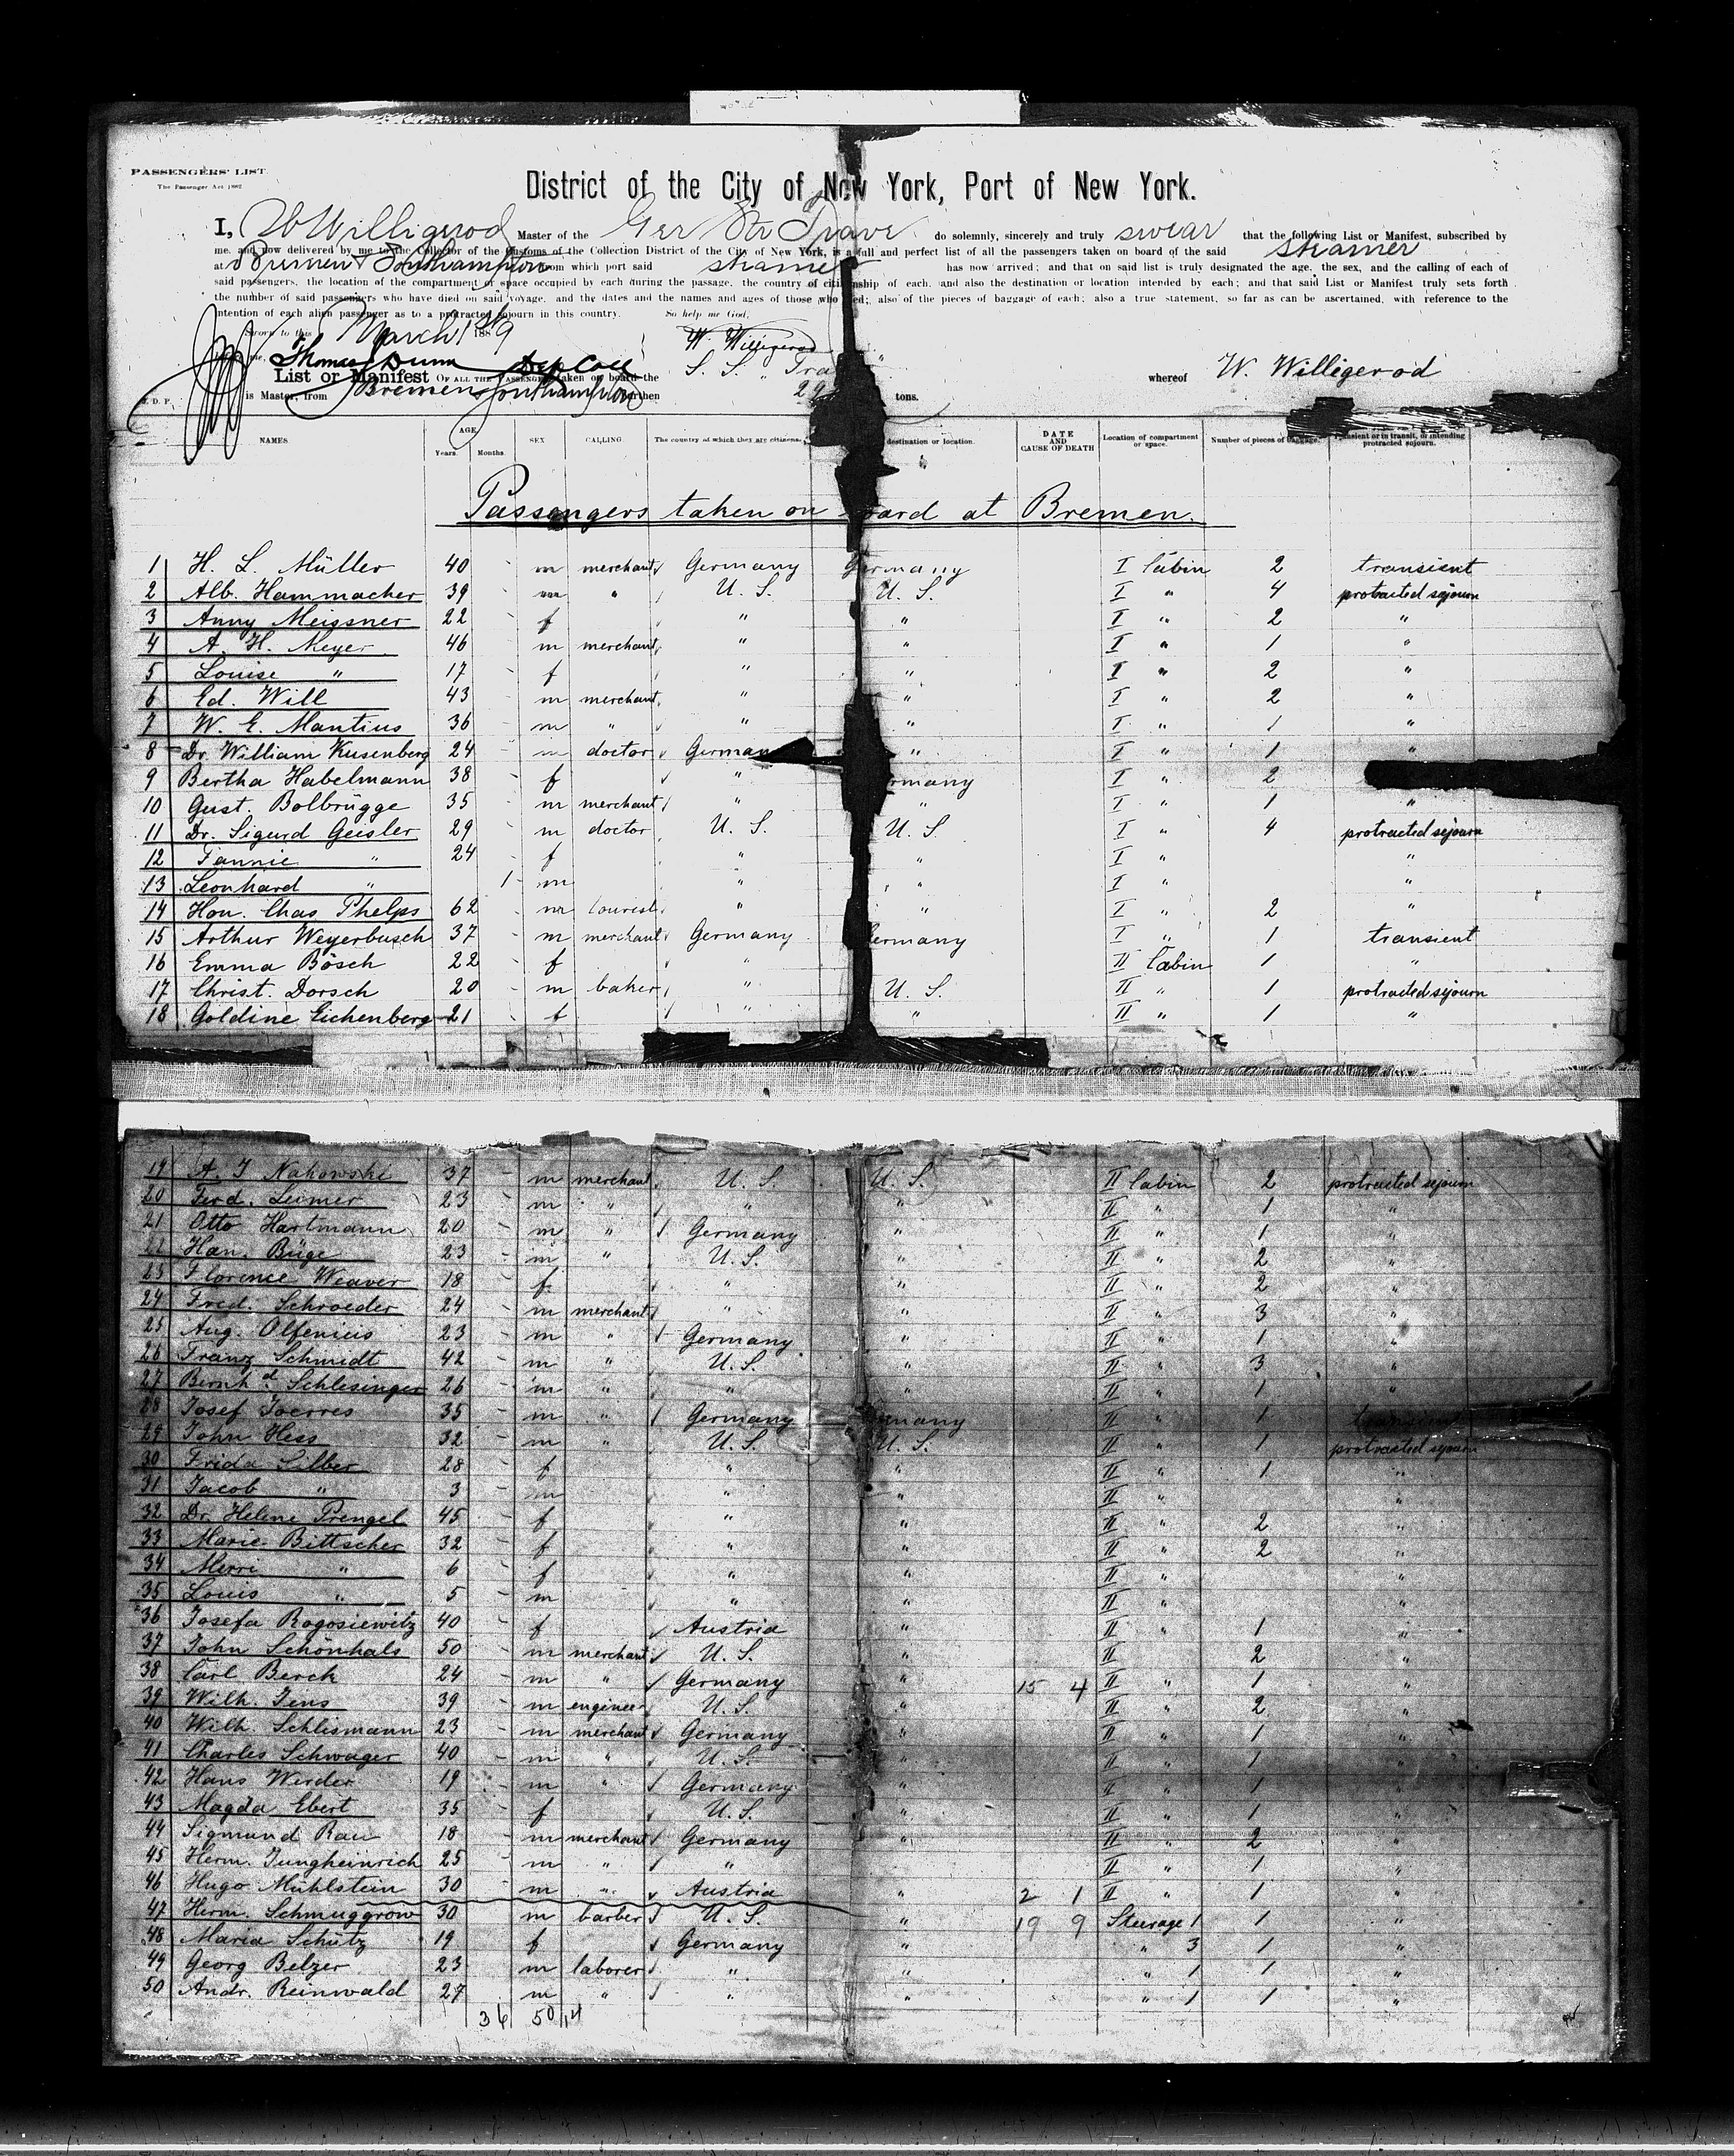 PASSENGERS' LIST.
The Passenger Act 1882
District of the City of New York, Port of New York.
I, W Willigerod Master of the Ger Str Trave do solemnly, sincerely and truly swear that the following List or Manifest, subscribed by
me, and now delivered by me to the Collector of the Customs of the Collection District of the City of New York, is a full and perfect list of all the passengers taken on board of the said steamer
at Bremen & Southampton from which port said steamer has now arrived; and that on said list is truly designated the age, the sex, and the calling of each of
said passengers, the location of the compartment or space occupied by each during the passage, the country of citizenship of each, and also the destination or location intended by each; and that said List or Manifest truly sets forth
the number of said passengers who have died on said voyage, and the dates and the names and ages of those who died; also of the pieces of baggage of each; also a true statement, so far as can be ascertained, with reference to the
intention of each alien passenger as to a protracted sojourn in this country. So help me God,
Sworn to this March 1889 W. Willigerod
me, Thomas Dunn Dep Coll
List or Manifest OF ALL THE PASSENGERS taken on board the S. S. " Tra " whereof W. Willigerod
is Master, from Bremen Southampton burthen 29 tons.
NAMES AGE Years. Months. SEX CALLING The country of which they are citizens. destination or location. DATE AND CAUSE OF DEATH Location of compartment or space. Number of pieces of baggage. Transient or in transit, or intending protracted sojourn.
Passengers taken on board at Bremen.
1 H. L. Müller 40 m merchant Germany Germany I Cabin 2 transient
2 Alb. Hammacher 39 m " U. S. U. S. I " 4 protracted sejourn
3 Anny Meissner 22 f " " I " 2 "
4 A. H. Meyer 46 m merchant " " I " 1 "
5 Louise " 17 f " " I " 2 "
6 Ed. Will 43 m merchant " " I " 2 "
7 W. E. Mantius 36 m " " " I " 1 "
8 Dr. William Kusenberg 24 m doctor German " I " 1 "
9 Bertha Habelmann 38 f " rmany I " 2
10 Gust. Bolbrügge 35 m merchant " " I " 1 "
11 Dr. Sigurd Geisler 29 m doctor U. S. U. S I " 4 protracted sejourn
12 Fannie " 24 f " " I " "
13 Leonhard " 1 m " " I " "
14 Hon. Chas Phelps 62 m tourist " " I " 2 "
15 Arthur Weyerbusch 37 m merchant Germany ermany I " 1 transient
16 Emma Bösch 22 f " II Cabin 1 "
17 Christ. Dorsch 20 m baker " U. S. II " 1 protracted sejourn
18 Goldine Eichenberg 21 f " " II " 1 "
19 A. J Nakowski 37 m merchant U. S. U. S. II Cabin 2 protracted sejourn
20 Ferd. Leimer 23 m " " " II " 1 "
21 Otto Hartmann 20 m " Germany " II " 1 "
22 Han. Büge 23 m " U. S. " II " 2 "
23 Florence Weaver 18 f " " II " 2 "
24 Fred. Schroeder 24 m merchant " " II " 3 "
25 Aug. Olfenius 23 m " Germany " II " 1 "
26 Franz Schmidt 42 m " U. S. " II " 3 "
27 Bernhd Schlesinger 26 m " " " II " 1 "
28 Josef Joerres 35 m " Germany rmany II " 1 transient
29 John Hess 32 m " U. S. U. S. II " 1 protracted sejourn
30 Frida Silber 28 f " " II " 1 "
31 Jacob " 3 m " " II " "
32 Dr. Helene Prengel 45 f " " II " 2 "
33 Marie Bittscher 32 f " " II " 2 "
34 Merri " 6 f " " II " "
35 Louis " 5 m " " II " "
36 Josefa Rogosiewitz 40 f Austria " II " 1 "
37 John Schönhals 50 m merchant U. S. " II " 2 "
38 Carl Berck 24 m " Germany " 15 4 II " 1 "
39 Wilh. Jens 39 m engineer U. S. " II " 2 "
40 Wilh. Schlismann 23 m merchant Germany " II " 1 "
41 Charles Schwager 40 m " U. S. " II " 1 "
42 Hans Werder 19 m " Germany " II " 1 "
43 Magda Ebert 35 f U. S. " II " 1 "
44 Sigmund Rau 18 m merchant Germany " II " 2 "
45 Herm. Jungheinrich 25 m " " II " 1 "
46 Hugo Mühlstein 30 m " Austria " 2 1 II " 1 "
47 Herm. Schmuggrow 30 m barber U. S. " 19 9 Steerage 1 1 "
48 Maria Schütz 19 f Germany " " 3 1 "
49 Georg Belzer 23 m laborer " " " 1 1 "
50 Andr. Reinwald 27 m " " " " 1 1 "
36 50/14